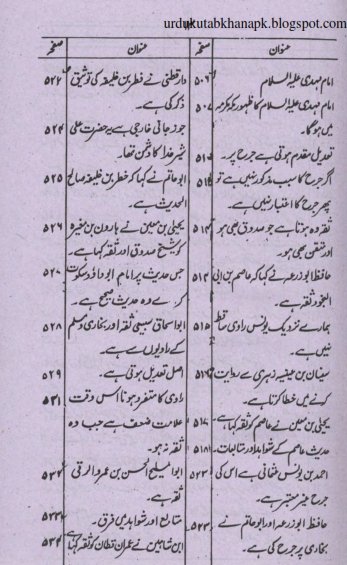 urdukutabkhanapk.blogspot.com
عنوان صفحہ
امام مہدی علیہ السلام ۵۰۶
امام مہدی علیہ السلام کا ظہور مکہ مکرمہ ۵۰۷
میں ہوگا۔
تعدیل مقدم ہوتی ہے جرح پر۔
اگر جرح کا سبب مذکور نہیں ہے تو
پھر جرح کا اعتبار نہیں ہے۔
ثقہ وہ ہوتا ہے جو صدوق بھی ہو
اور متقن بھی ہو۔
حافظ ابوزرعہ نے کہا کہ عاصم بن ابی ۵۱۴
النجود ثقہ ہے۔
ہمارے نزدیک یونس راوی ساقط ۵۱۵
نہیں ہے۔
سفیان بن عیینہ زہری سے روایت
کرنے میں خطا کرتا ہے۔
یحییٰ بن معین نے عاصم کو ثقہ کہا ہے۔ ۵۱۷
حدیث عاصم کے شواہد اور متابعات۔ ۵۱۸
احمد بن یونس خثمانی ہے اس کی ۵۲۳
جرح غیر معتبر ہے۔
حافظ ابوزرعہ اور ابوحاتم نے ۵۲۳
بخاری پر جرح کی ہے۔
عنوان صفحہ
دارقطنی نے فطر بن خلیفہ کی توثیق
ذکر کی ہے۔
جوزجانی خارجی ہے یہ حضرت علی ۵۲۴
شیر خدا کا دشمن تھا۔
ابوحاتم نے کہا کہ فطر بن خلیفہ صالح ۵۲۵
الحدیث ہے۔
یحییٰ بن معین نے ہارون بن مغیرہ ۵۲۶
کو شیخ صدوق اور ثقہ کہا ہے۔
جس حدیث پر امام ابوداؤد سکوت
کرے وہ حدیث صحیح ہے۔
ابواسحاق سبیعی ثقہ اور بخاری و مسلم ۵۲۸
کے راویوں سے ہے۔
اصل تعدیل ہوتی ہے۔ ۵۲۹
راوی کا متفرد ہونا اس وقت ۵۳۱
علامت ضعف ہے جب وہ
ثقہ نہ ہو۔
ابوالملیح الحسن بن عمر الرقی
ثقہ ہے۔
متابع اور شواہد میں فرق۔
ابن شاہین نے عمران قطان کو ثقہ کہا ہے